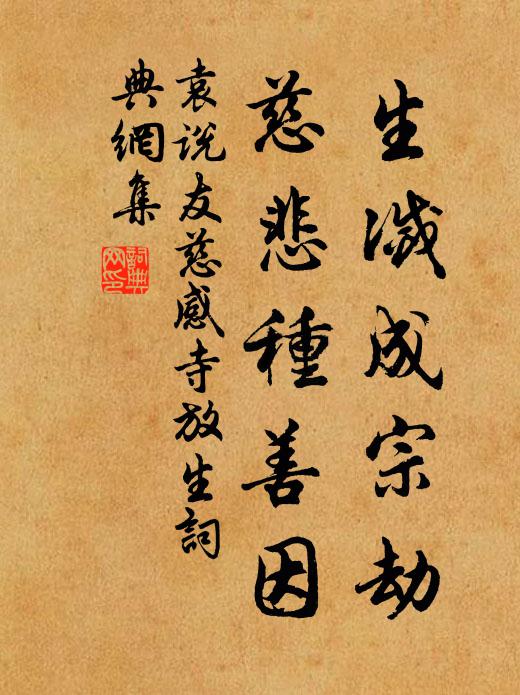 生滅成宗劫
慈悲種善因
袁说友慈感寺放生詞
典網集
詞典
网印